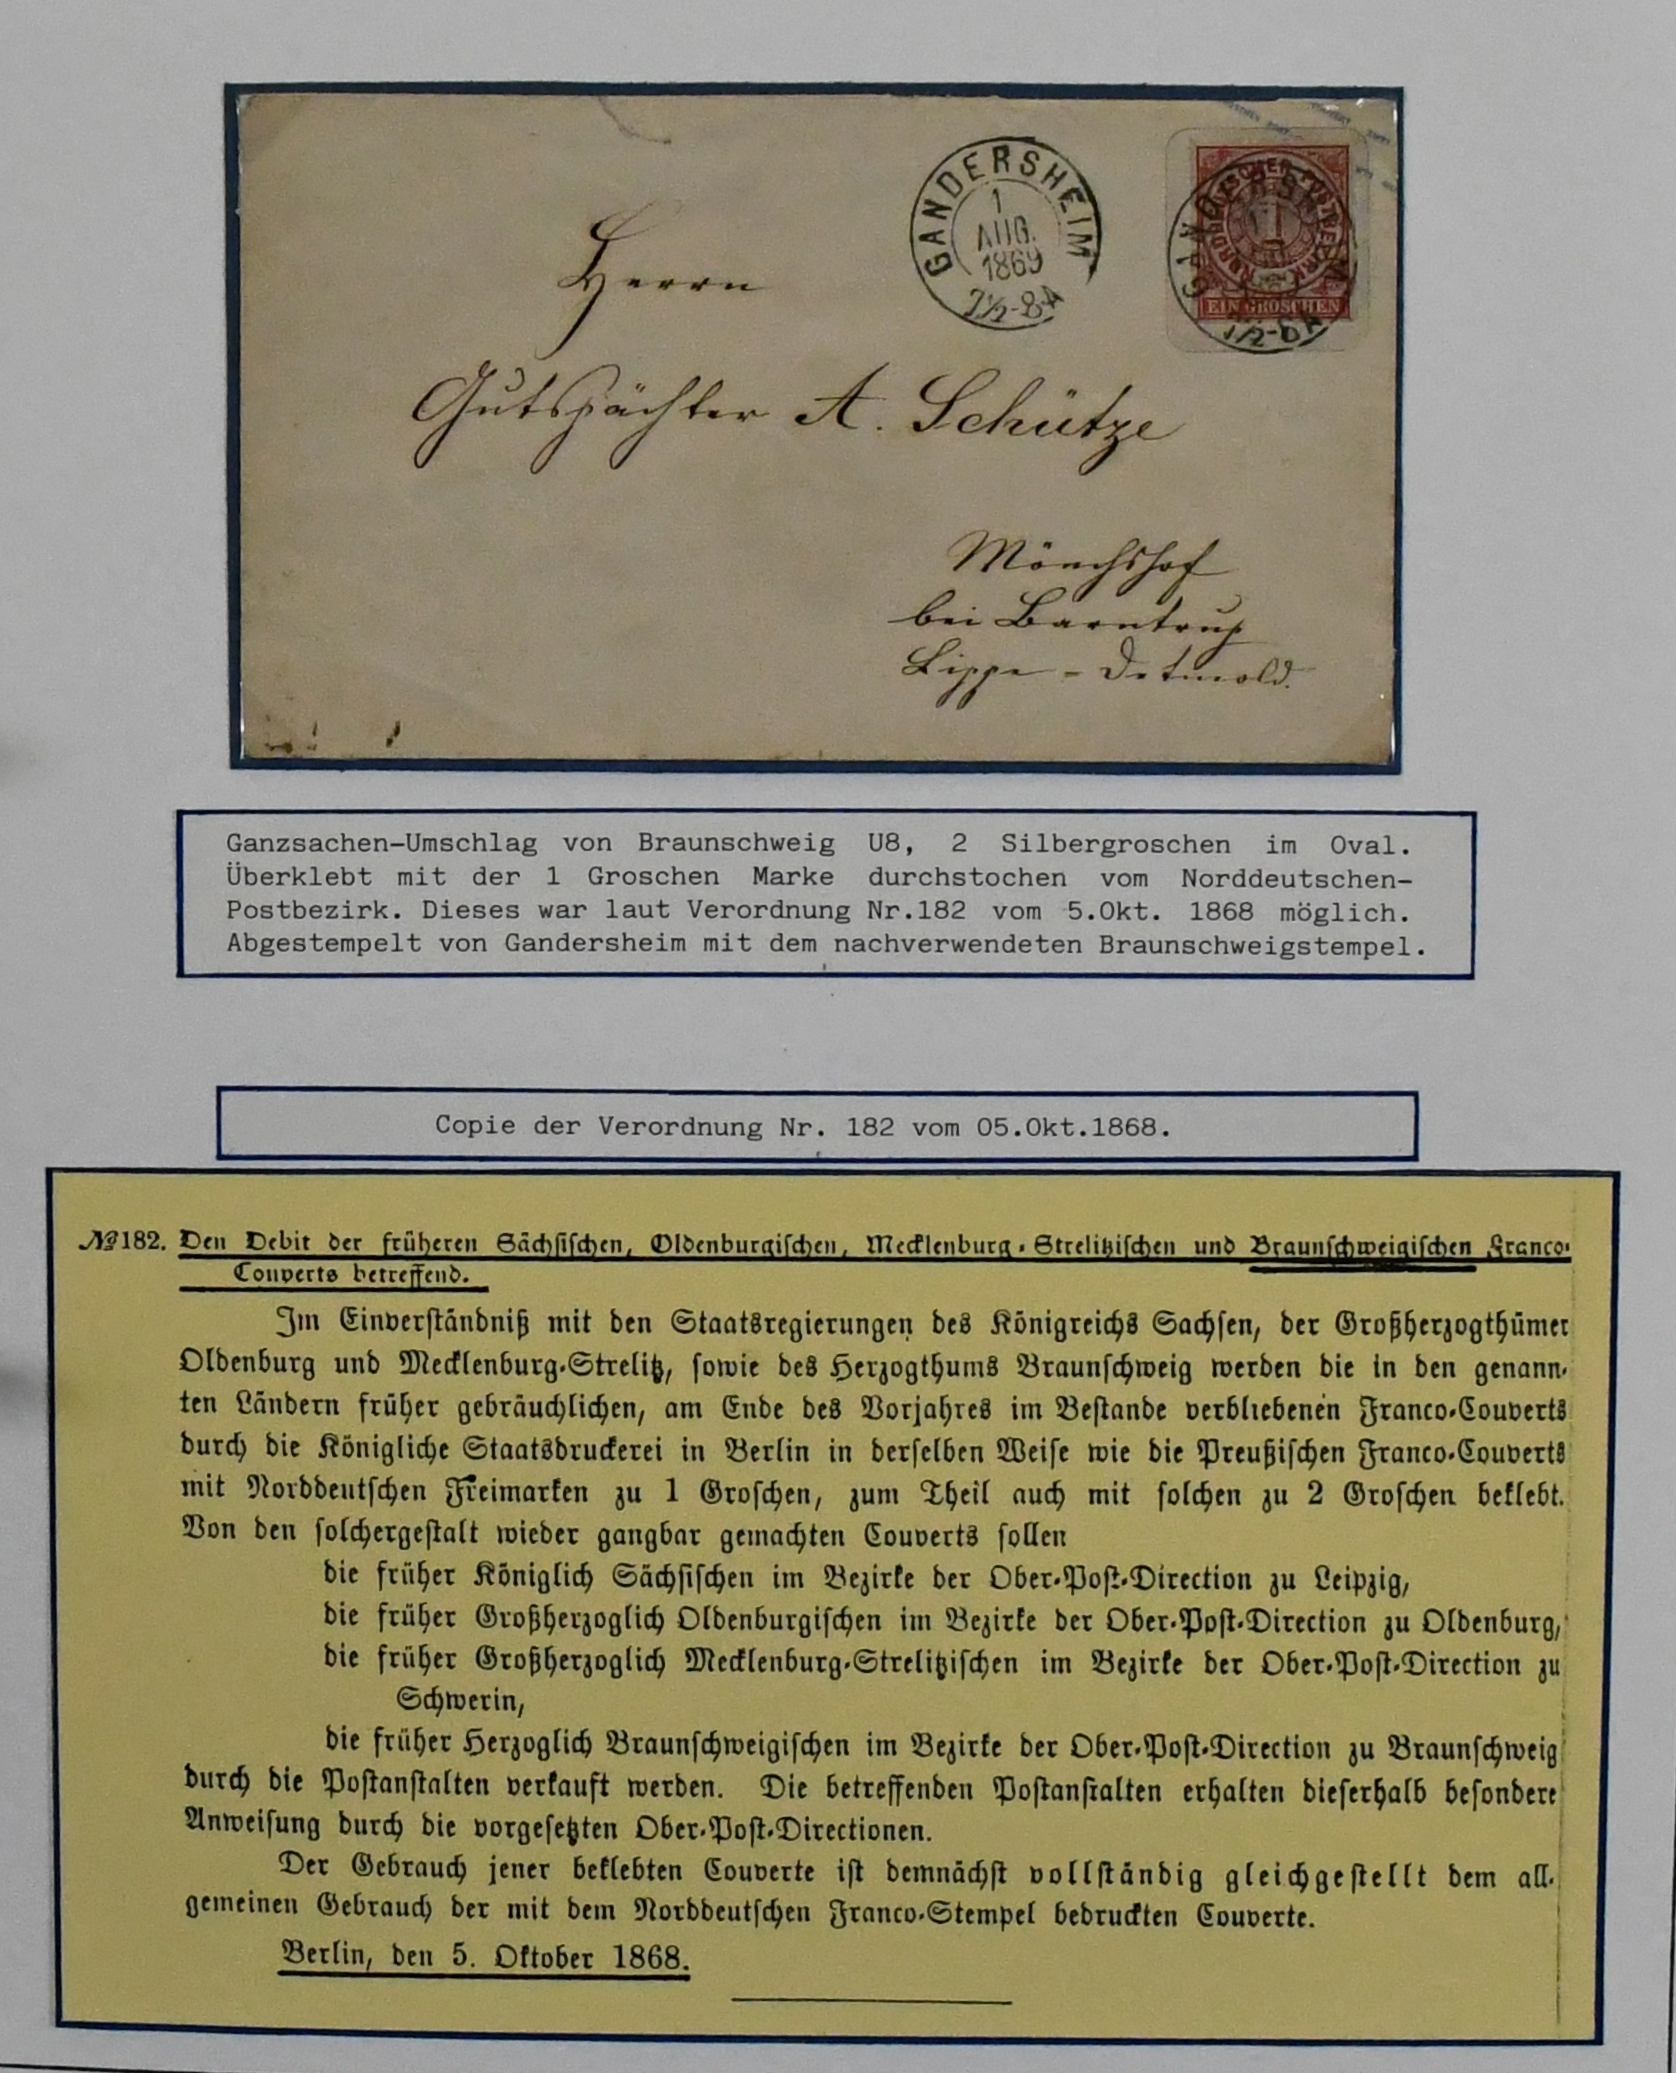 GANDERSHEIM
1
AUG.
1869
7½-8A
NORDDEUTSCHER POSTBEZIRK
1
EIN GROSCHEN
Herrn
Gutspächter A. Schütze
Mönchshof
bei Barntrup
Lippe-Detmold.
Ganzsachen-Umschlag von Braunschweig U8, 2 Silbergroschen im Oval.
Überklebt mit der 1 Groschen Marke durchstochen vom Norddeutschen-
Postbezirk. Dieses war laut Verordnung Nr.182 vom 5.Okt. 1868 möglich.
Abgestempelt von Gandersheim mit dem nachverwendeten Braunschweigstempel.
Copie der Verordnung Nr. 182 vom 05.Okt.1868.
№ 182. Den Debit der früheren Sächſiſchen, Oldenburgiſchen, Mecklenburg-Strelitziſchen und Braunſchweigiſchen Franco-
Couverts betreffend.
Im Einverſtändniß mit den Staatsregierungen des Königreichs Sachſen, der Großherzogthümer
Oldenburg und Mecklenburg-Strelitz, ſowie des Herzogthums Braunſchweig werden die in den genann-
ten Ländern früher gebräuchlichen, am Ende des Vorjahres im Beſtande verbliebenen Franco-Couverts
durch die Königliche Staatsdruckerei in Berlin in derſelben Weiſe wie die Preußiſchen Franco-Couverts
mit Norddeutſchen Freimarken zu 1 Groſchen, zum Theil auch mit ſolchen zu 2 Groſchen beklebt.
Von den ſolchergeſtalt wieder gangbar gemachten Couverts ſollen
die früher Königlich Sächſiſchen im Bezirke der Ober-Poſt-Direction zu Leipzig,
die früher Großherzoglich Oldenburgiſchen im Bezirke der Ober-Poſt-Direction zu Oldenburg,
die früher Großherzoglich Mecklenburg-Strelitziſchen im Bezirke der Ober-Poſt-Direction zu
Schwerin,
die früher Herzoglich Braunſchweigiſchen im Bezirke der Ober-Poſt-Direction zu Braunſchweig
durch die Poſtanſtalten verkauft werden. Die betreffenden Poſtanſtalten erhalten dieſerhalb beſondere
Anweiſung durch die vorgeſetzten Ober-Poſt-Directionen.
Der Gebrauch jener beklebten Couverte iſt demnächſt vollſtändig gleichgeſtellt dem all-
gemeinen Gebrauch der mit dem Norddeutſchen Franco-Stempel bedruckten Couverte.
Berlin, den 5. Oktober 1868.